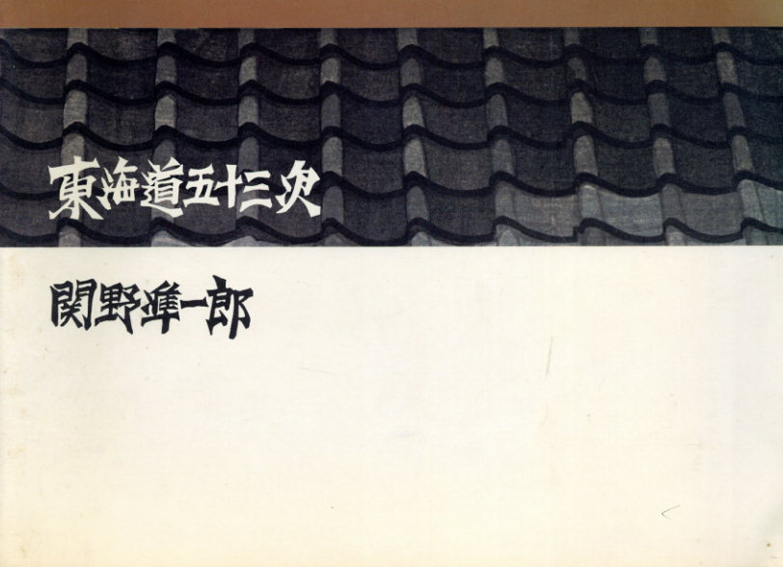 東海道五十三次
関野凖一郎